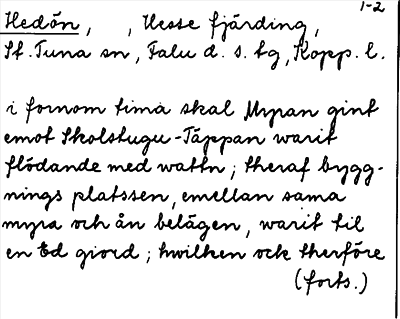 1-2
Hedön, , Uesse fjärding,
St. Tuna sn, Falu d. s. tg, Kopp. l.
i fornom tima skal Myran gint
emot Skolstugu-Täppan warit
flödande med wattn; theraf bygg-
nings platssen, emellan sama
myra och ån belägen, warit til
en Ed giord; hwilken ock therföre
(forts.)